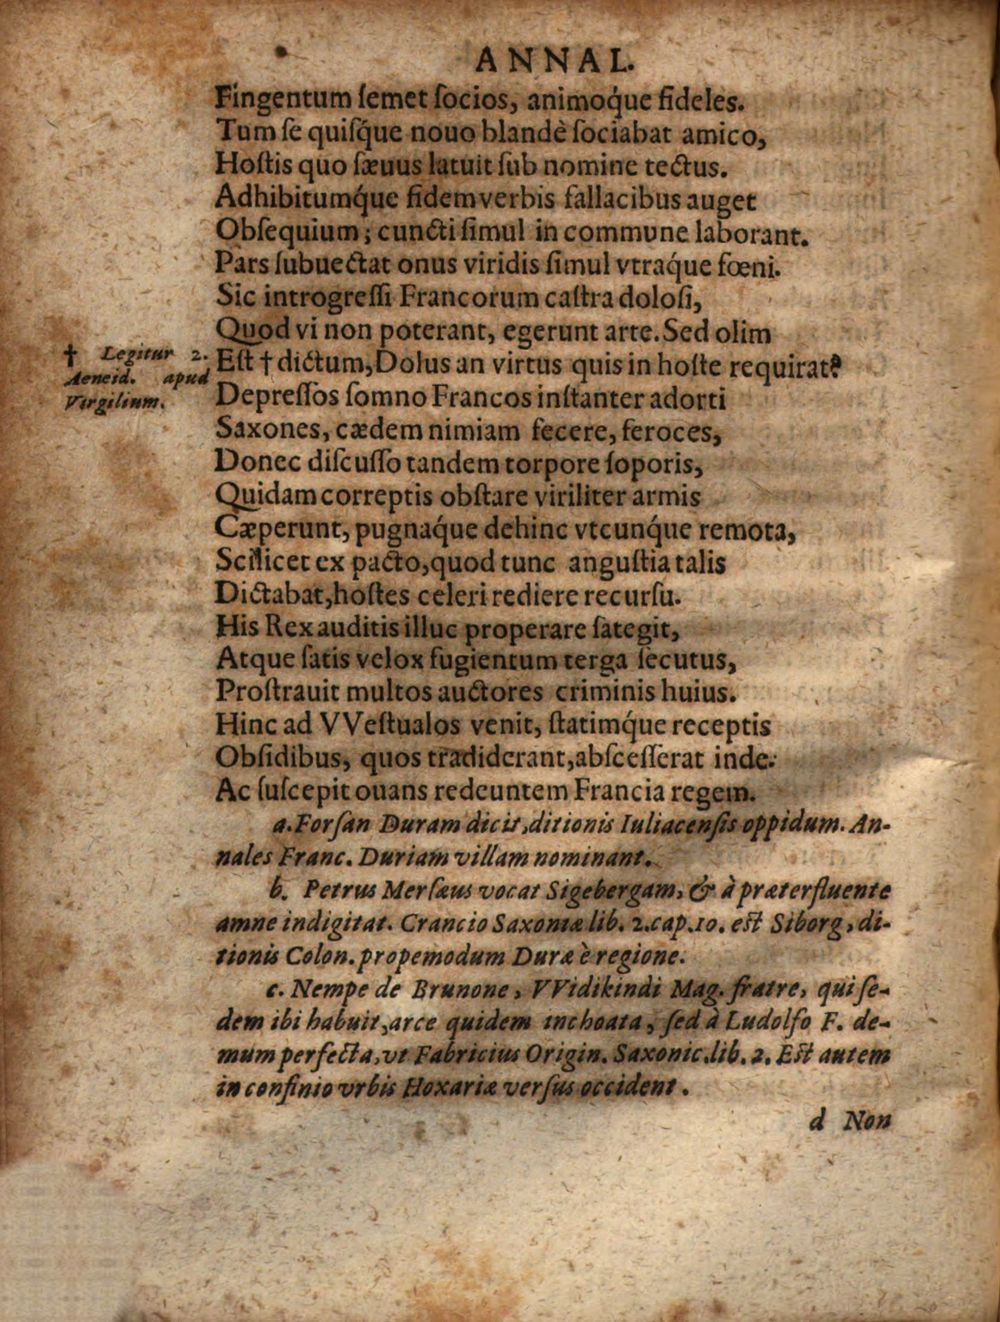 ANNAL.
Fingentum ſemet ſocios, animoq́ue fideles.
Tum ſe quiſq́ue nouo blandè ſociabat amico,
Hoſtis quo ſæuus latuit ſub nomine tectus.
Adhibitumq́ue fidem verbis fallacibus auget
Obſequium; cuncti ſimul in commune laborant.
Pars ſubuectat onus viridis ſimul vtraq́ue fœni.
Sic introgreſſi Francorum caſtra doloſi,
Quod vi non poterant, egerunt arte. Sed olim
Eſt † dictum, Dolus an virtus quis in hoſte requirat?
† Legitur 2.
Aeneid. apud
Virgilium.
Depreſſos ſomno Francos inſtanter adorti
Saxones, cædem nimiam fecere, feroces,
Donec diſcuſſo tandem torpore ſoporis,
Quidam correptis obſtare viriliter armis
Cæperunt, pugnaq́ue dehinc vtcunq́ue remota,
Scilicet ex pacto, quod tunc anguſtia talis
Dictabat, hoſtes celeri rediere recurſu.
His Rex auditis illuc properare ſategit,
Atque ſatis velox fugientum terga ſecutus,
Proſtrauit multos auctores criminis huius.
Hinc ad VVeſtualos venit, ſtatimq́ue receptis
Obſidibus, quos tradiderant, abſceſſerat inde.
Ac ſuſcepit ouans redeuntem Francia regem.
a. Forſan Duram dicit, ditionis Iuliacenſis oppidum. An-
nales Franc. Duriam villam nominant.
b. Petrus Merſæus vocat Sigebergam, & à præterfluente
amne indigitat. Crancio Saxoniæ lib. 2. cap. 10. eſt Siborg, di-
tionis Colon. propemodum Duræ è regione.
c. Nempe de Brunone, VVidikindi Mag. fratre, qui ſe-
dem ibi habuit, arce quidem inchoata, ſed à Ludolfo F. de-
mum perfecta, vt Fabricius Origin. Saxonic. lib. 2. Eſt autem
in confinio vrbis Hoxariæ verſus occident.
d Non